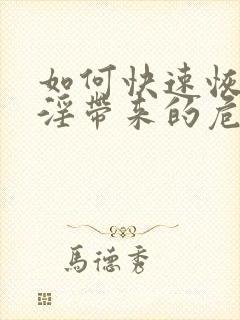 如何快速恢
淫帶来的危
馬德秀